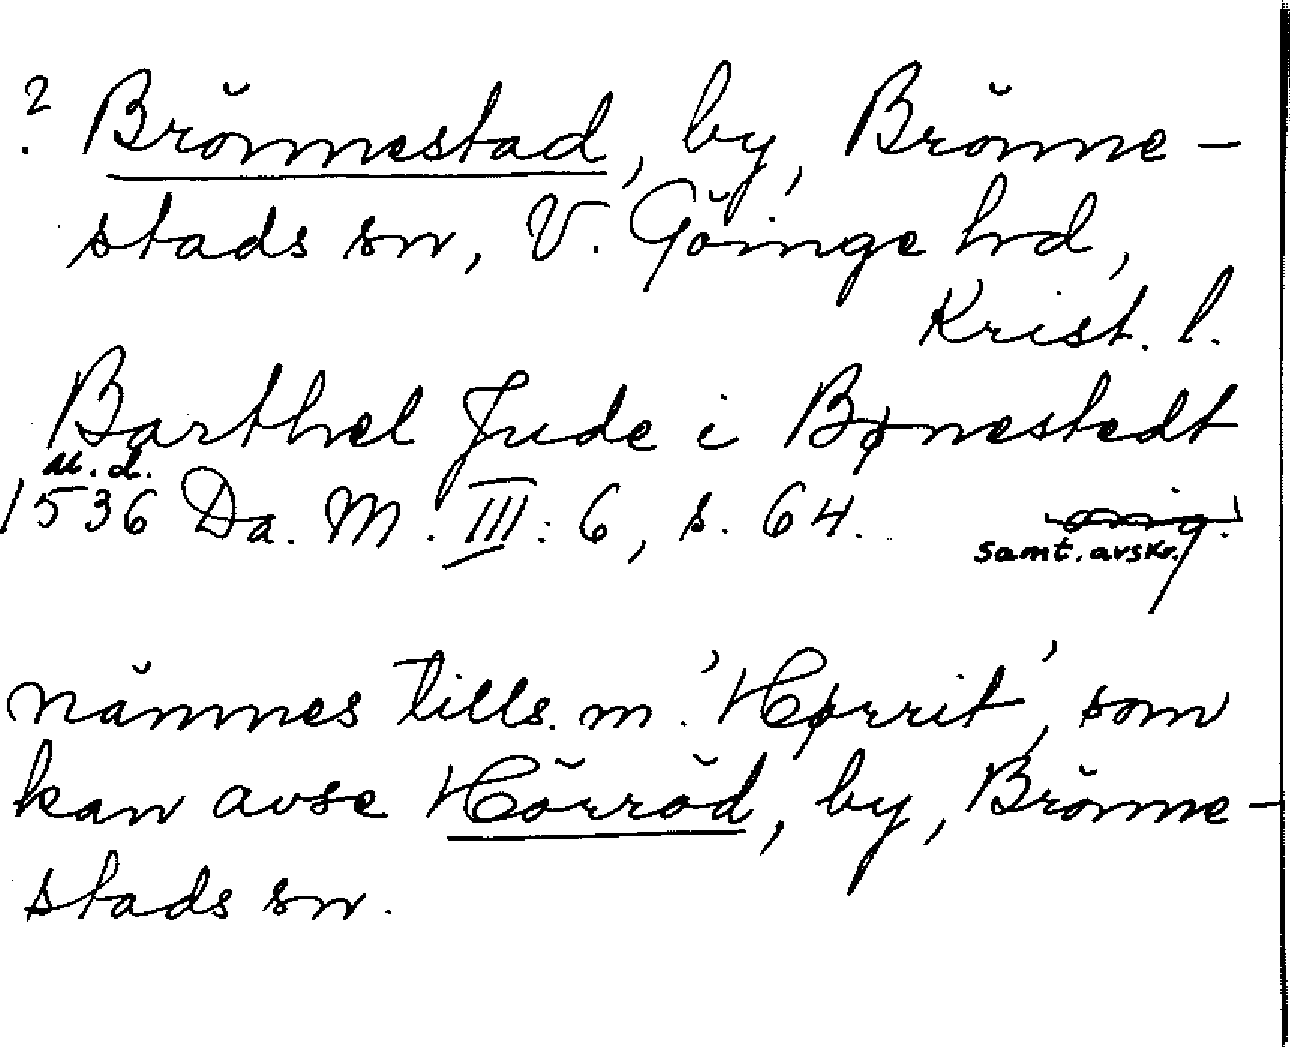 ? Brönnestad, by, Brönne-
stads sn, V. Göinge hd,
Krist. l.
Barthel Jude i Bønestedt
u. d.
1536 Da. M. III: 6, s. 64. orig.
samt. avskr.
nämnes tills. m. 'Hørrit', som
kan avse Hörröd, by, Brönne-
stads sn.